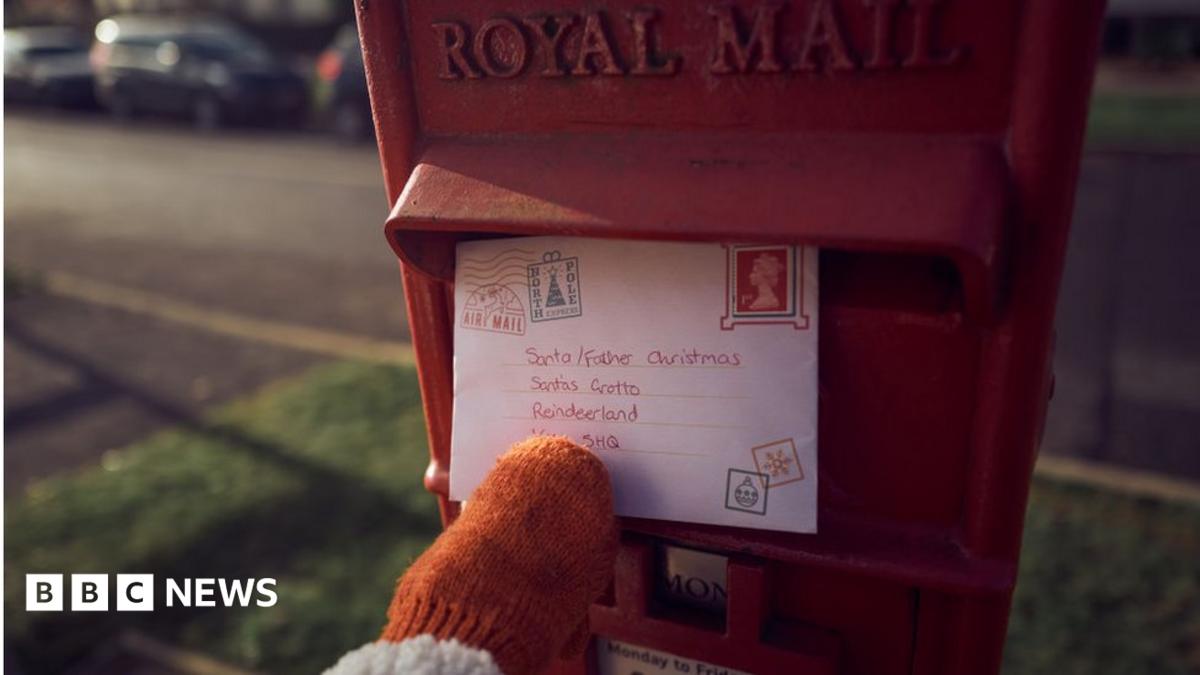 ROYAL MAIL
AIR MAIL
NORTH POLE
EXPRESS
1ST
Santa/Father Christmas
Santa's Grotto
Reindeerland
5HQ
MON
Monday to Frid
BBC NEWS